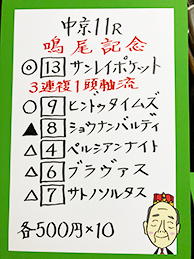 中京11R
鳴尾記念
◎ 13 サンレイポケット
3連複1頭軸流
○ 9 ヒンドゥタイムズ
▲ 8 ショウナンバルディ
△ 4 ペルシアンナイト
△ 6 ブラヴァス
△ 7 サトノソルタス
各500円×10